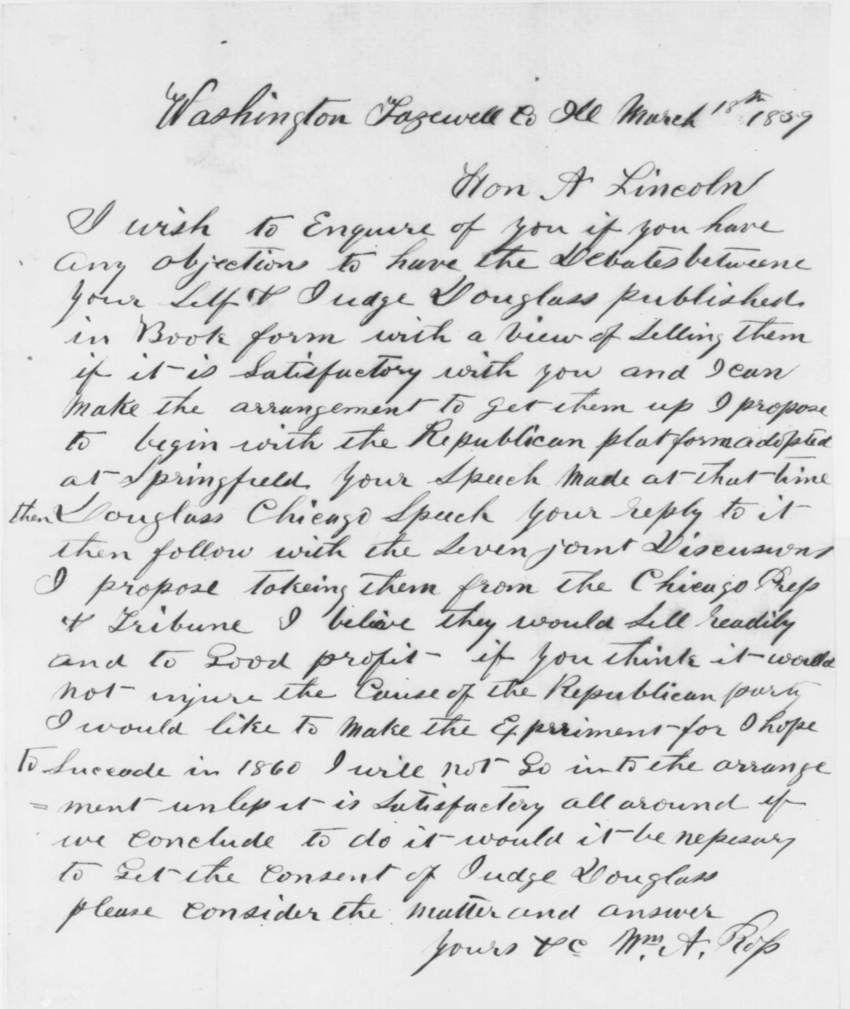 Washington Tazewell Co Ill March 18th 1859
Hon A Lincoln
I wish to Enquire of you if you have
any objections to have the Debates betweene
your Self & Judge Douglass published
in Book form with a View of Selling them
if it is Satisfactory with you and I can
make the arrangement to get them up I propose
to begin with the Republican platform adopted
at Springfield your Speech made at that time
then Douglass Chicago Speech your reply to it
then follow with the Seven joint Discusions
I propose takeing them from the Chicago Press
& Tribune I belive they would Sell readily
and to Good profit if you think it would
not injure the Cause of the Republican party
I would like to make the Experiment for I hope
to Succede in 1860 I will not Go in to the arrange
= ment unless it is Satisfactory all around if
we conclude to do it would it be nessesary
to Get the Consent of Judge Douglass
please Consider the matter and answer
yours &c Wm. A. Ross